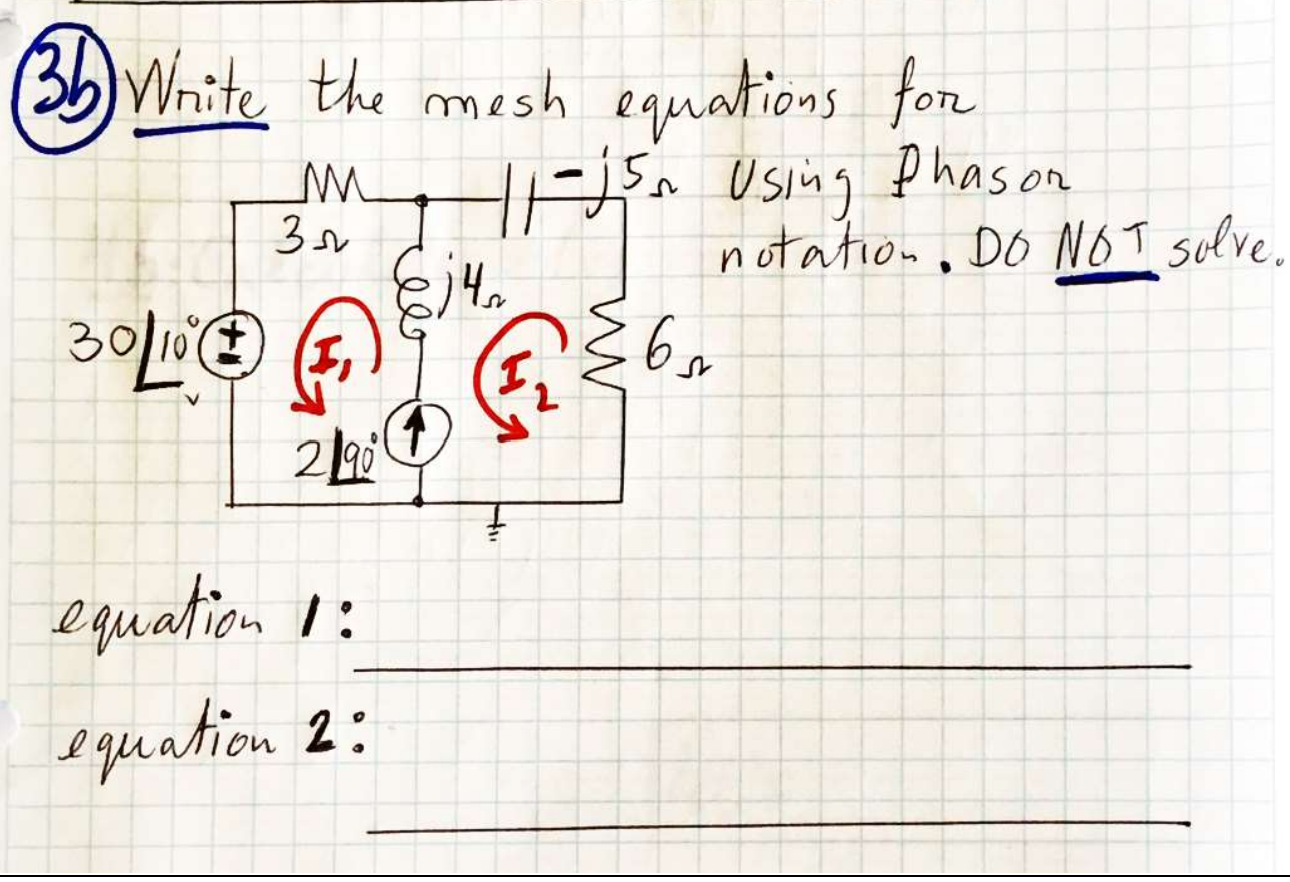 3b Write the mesh equations for
-j5Ω Using Phasor
3Ω
notation. DO NOT solve.
j4Ω
30∠10° + -
v
I₁
I₂
6Ω
2∠90°
equation 1:
equation 2: